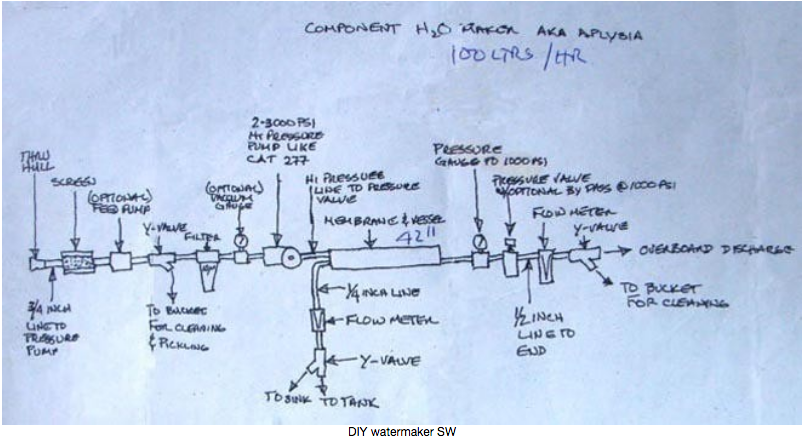 COMPONENT H2O MAKER AKA APLYSIA
100 LTRS/HR
THRU
HULL
SCREEN
(OPTIONAL)
FEED PUMP
Y-VALVE
FILTER
(OPTIONAL)
VACUUM
GAUGE
2-3000 PSI
HI PRESSURE
PUMP LIKE
CAT 277
HI PRESSURE
LINE TO PRESSURE
VALVE
MEMBRANE & VESSEL
42"
PRESSURE
GAUGE TO 1000 PSI
PRESSURE VALVE
W/OPTIONAL BY PASS @ 1000 PSI
FLOW METER
Y-VALVE
OVERBOARD DISCHARGE
TO BUCKET
FOR CLEANING
3/4 INCH
LINE TO
PRESSURE
PUMP
TO BUCKET
FOR CLEANING
& PICKLING
1/4 INCH LINE
FLOW METER
Y-VALVE
TO SINK
TO TANK
1/2 INCH
LINE TO
END
DIY watermaker SW